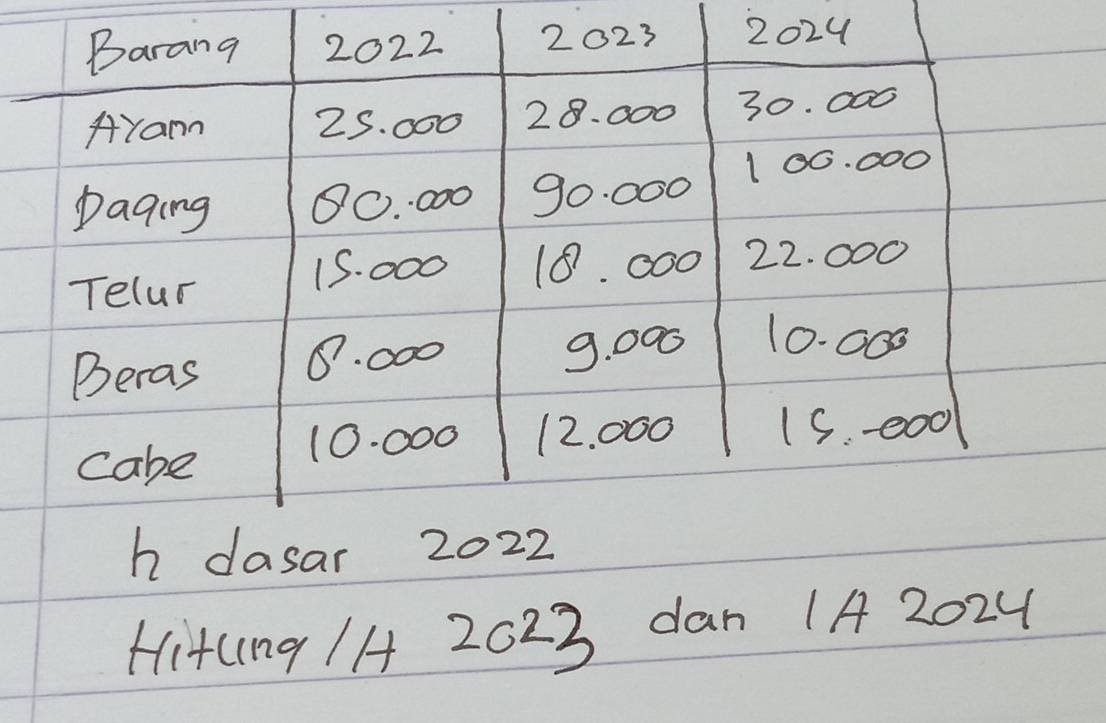 Barang 2022 2023 2024
Ayam 25.000 28.000 30.000
Daging 80.000 90.000 100.000
Telur 15.000 18.000 22.000
Beras 8.000 9.000 10.000
Cabe 10.000 12.000 15.000
h dasar 2022
Hitung IH 2023 dan IA 2024